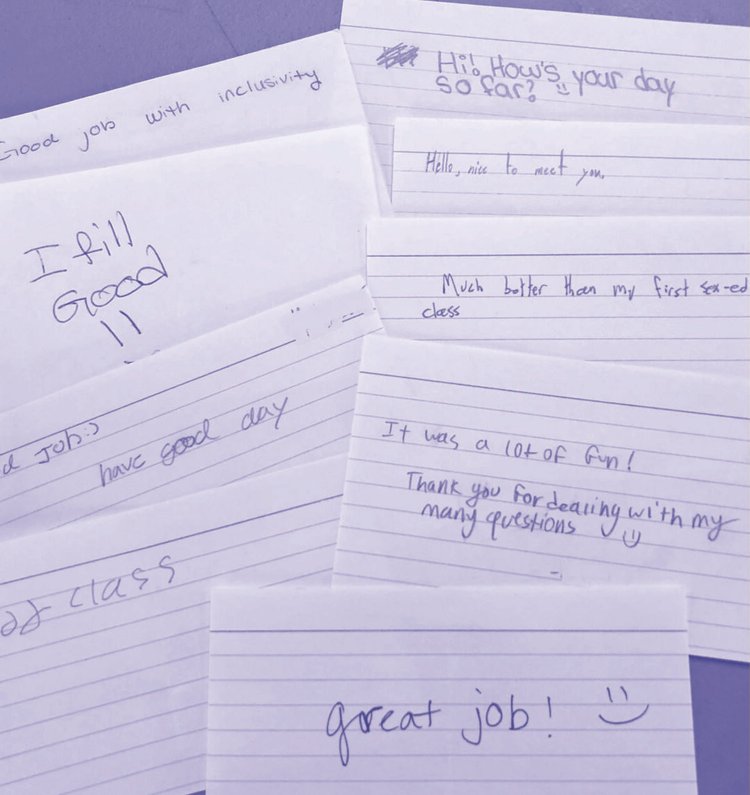 Good job with inclusivity
Hi! How's your day
so far?
Hello, nice to meet you.
I fill
Good
Much better than my first sex-ed
class
d Job:)
have good day
It was a lot of fun!
Thank you for dealing with my
many questions
class
great job!